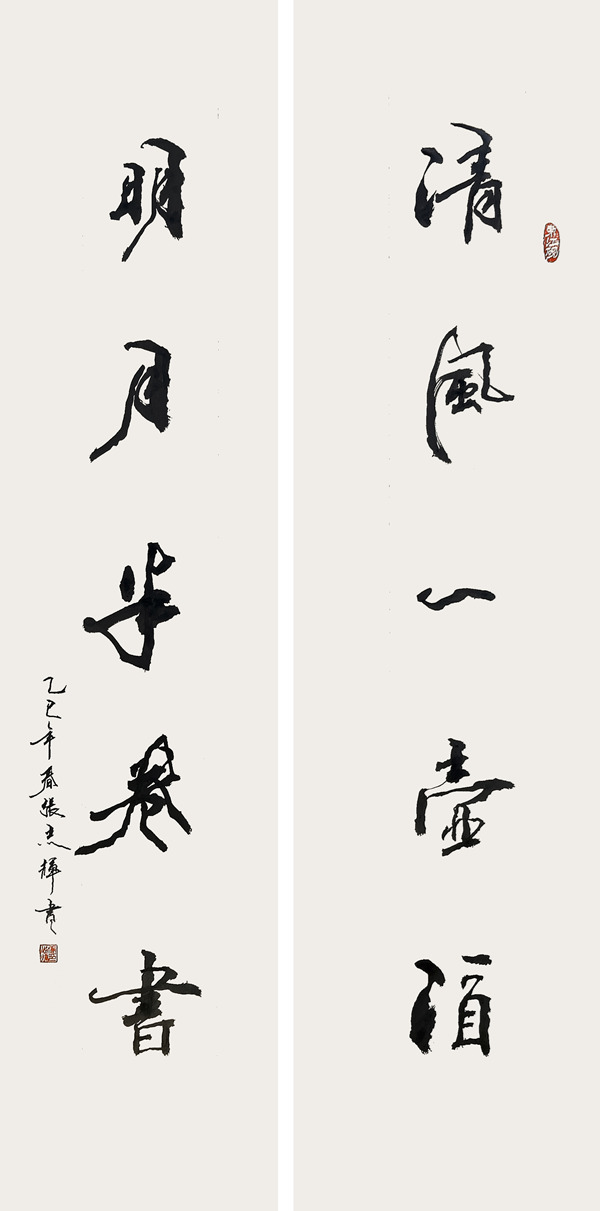 清風一壺酒
明月半卷書
乙巳年春張志輝書